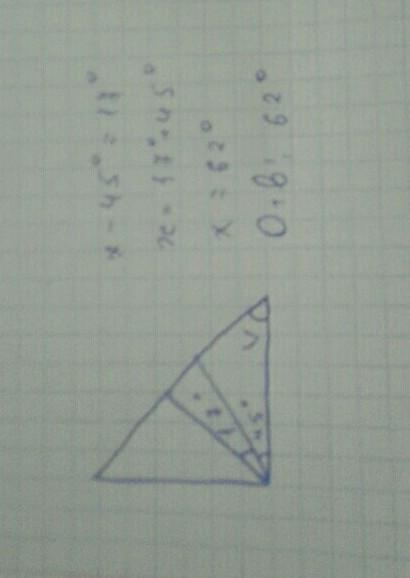 x - 45° = 17°
x = 17° + 45°
x = 62°
Отв: 62°
17°
45°